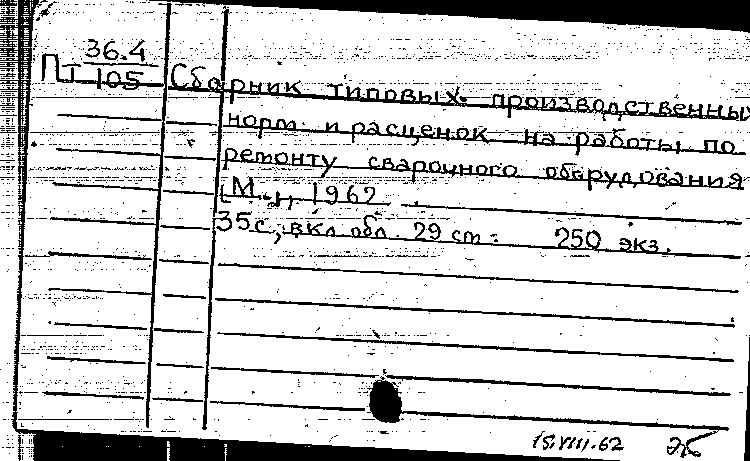 36.4
П I-105 Сборник типовых производственных
норм и расценок на работы по
ремонту сварочного оборудования
[М.], 1962
35с, вкл обл. 29 см. 250 экз.
15.VIII.62